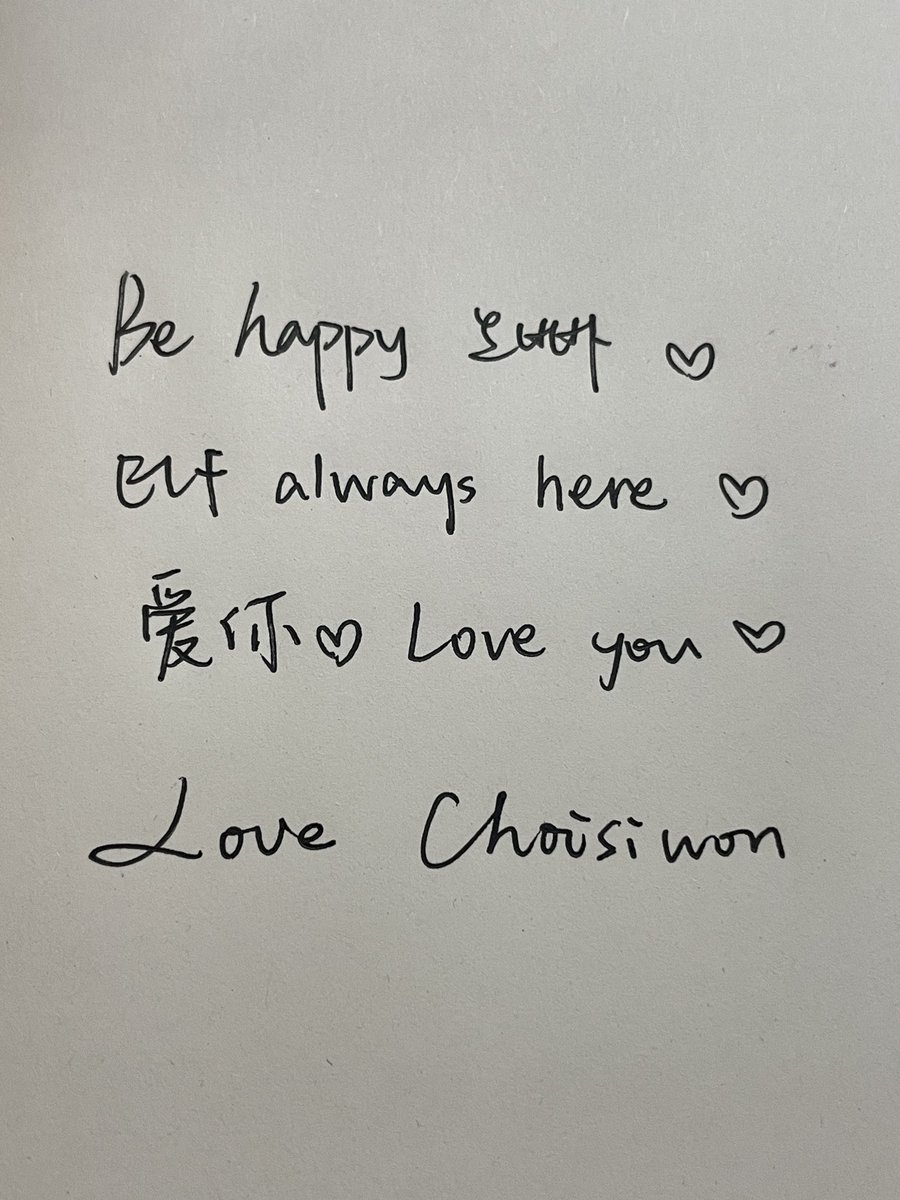 Be happy 오빠 ♡
ELF always here ♡
爱你♡ Love you ♡
Love Choisiwon